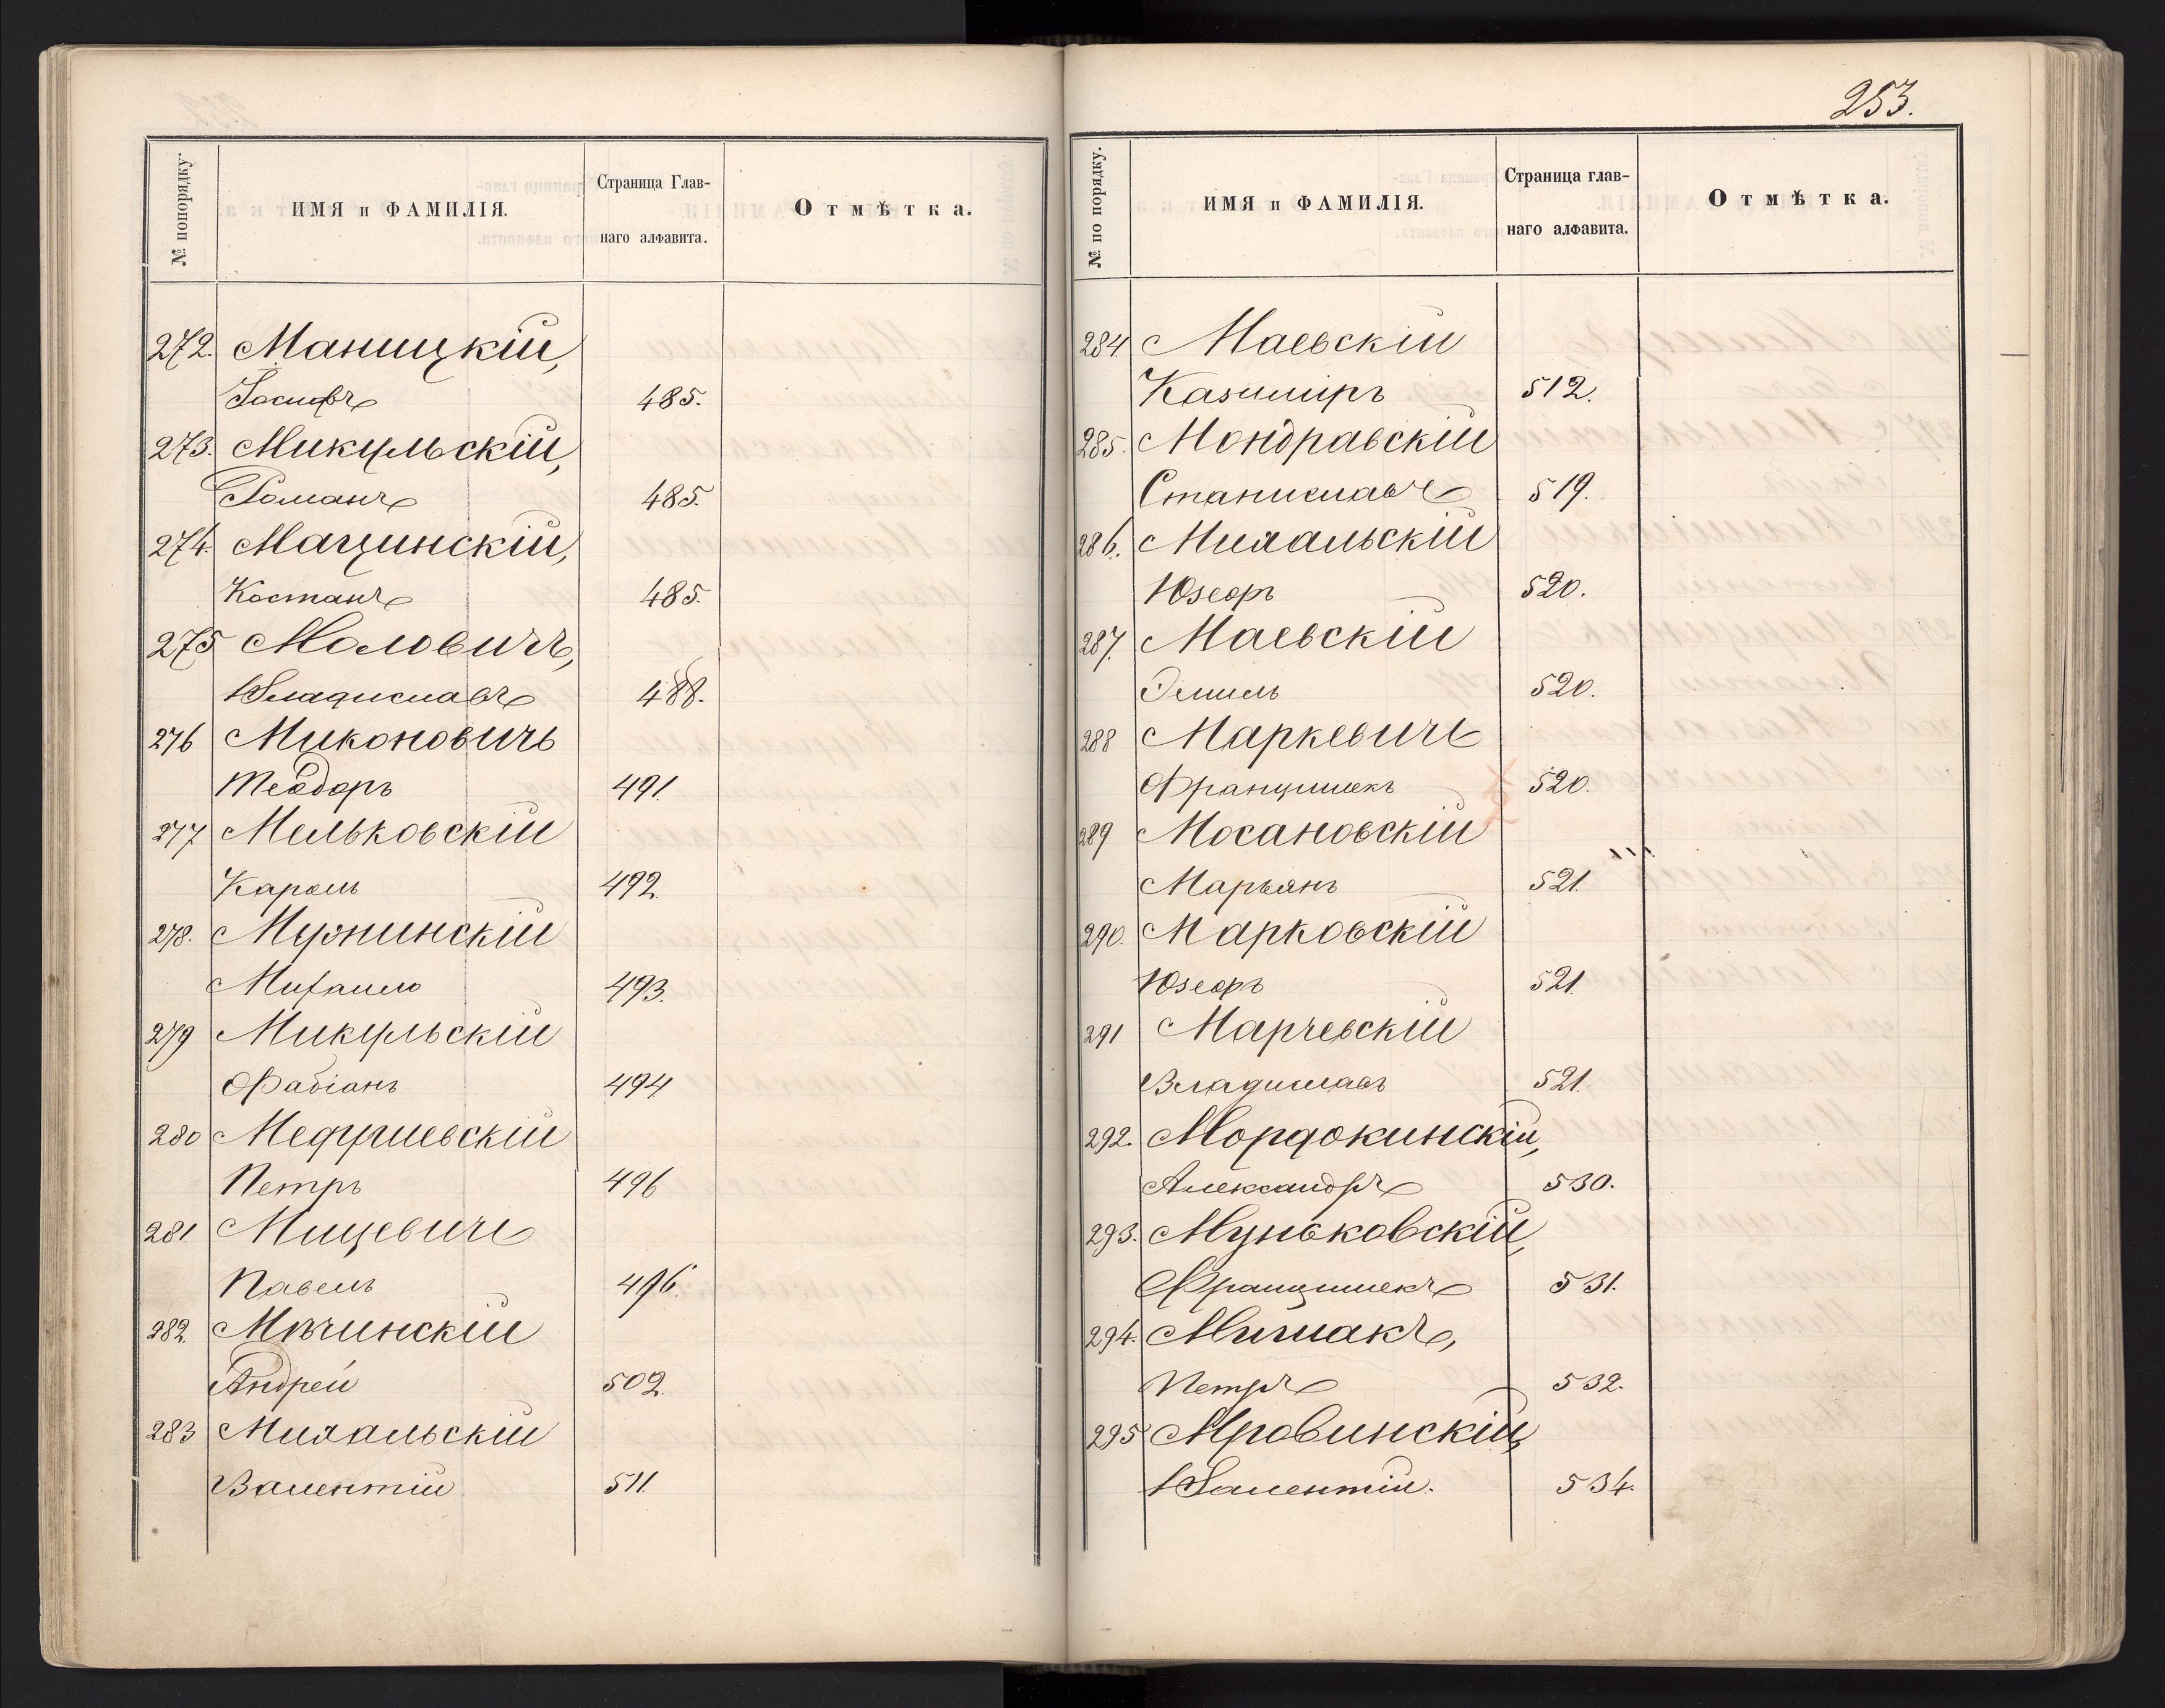 № попорядку.
ИМЯ и ФАМИЛІЯ.
Страница Глав-
наго алфавита.
Отмѣтка.
272. Маницкій,
Іосифъ 485.
273. Микульскій,
Романъ 485.
274. Мацинскій,
Костанъ 485.
275 Моловичъ,
Владиславъ 488.
276 Миконовичъ
Теодоръ 491.
277 Мельковскій
Кароль 492.
278. Мужинскій
Михаилъ 493.
279 Микульскій
Фабіанъ 494
280 Медушевскій
Петръ 496
281 Мицевичъ
Павелъ 496.
282. Мѣчинскій
Андрей 502.
283 Михальскій
Валентій 511.
253.
№ по порядку.
ИМЯ и ФАМИЛІЯ.
Страница глав-
наго алфавита.
Отмѣтка.
284 Маевскій
Казиміръ 512.
285. Мондравскій
Станиславъ 519.
286. Михальскій
Юзефъ 520.
287. Маевскій
Эмиль 520.
288 Маркевичъ
Францишекъ 520.
289 Мосановскій
Марьянъ 521.
290. Марковскій
Юзефъ 521.
291 Марчевскій
Владиславъ 521.
292. Мордокинскій,
Александръ 530.
293. Муньковскій,
Францишекъ 531.
294. Мишакъ,
Петръ 532.
295 Мровинскій,
Валентій. 534.